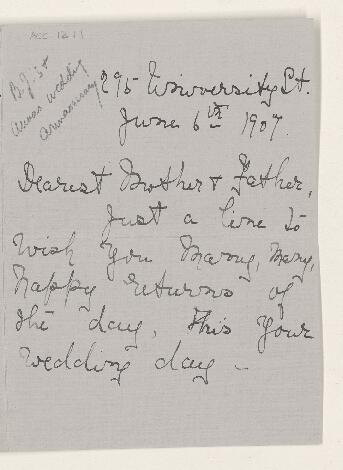 ACC 1211
B.J.'s &
wedding
anniversary
295 University St.
June 6th 1907.
Dearest Mother & Father,
Just a line to
wish you Many, Many,
happy returns of
the day, this your
wedding day –